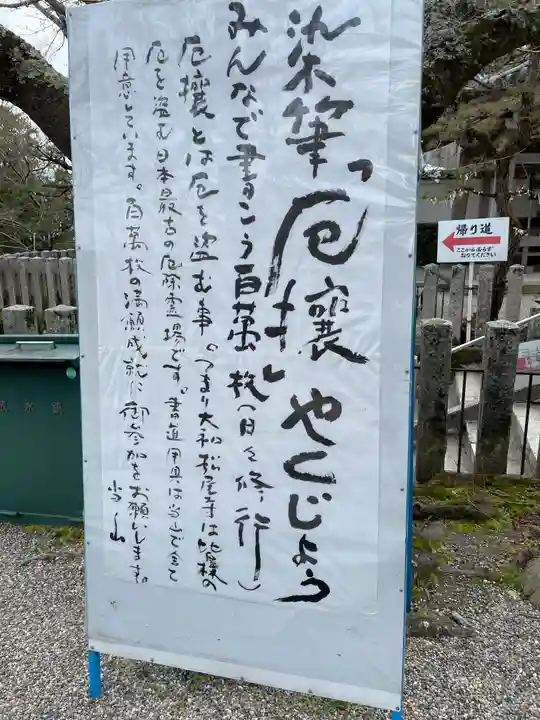 染筆「厄攘」やくじょう
みんなで書こう百萬枚(日々修行)
厄攘とは厄を盗む事。つまり大和松尾寺は皆様の
厄を盗む日本最古の厄除霊場です。書道用具は当山で全て
用意しています。百萬枚の満願成就に御参加をお願いします。
当山
帰り道
ここからは右らず
おりてください